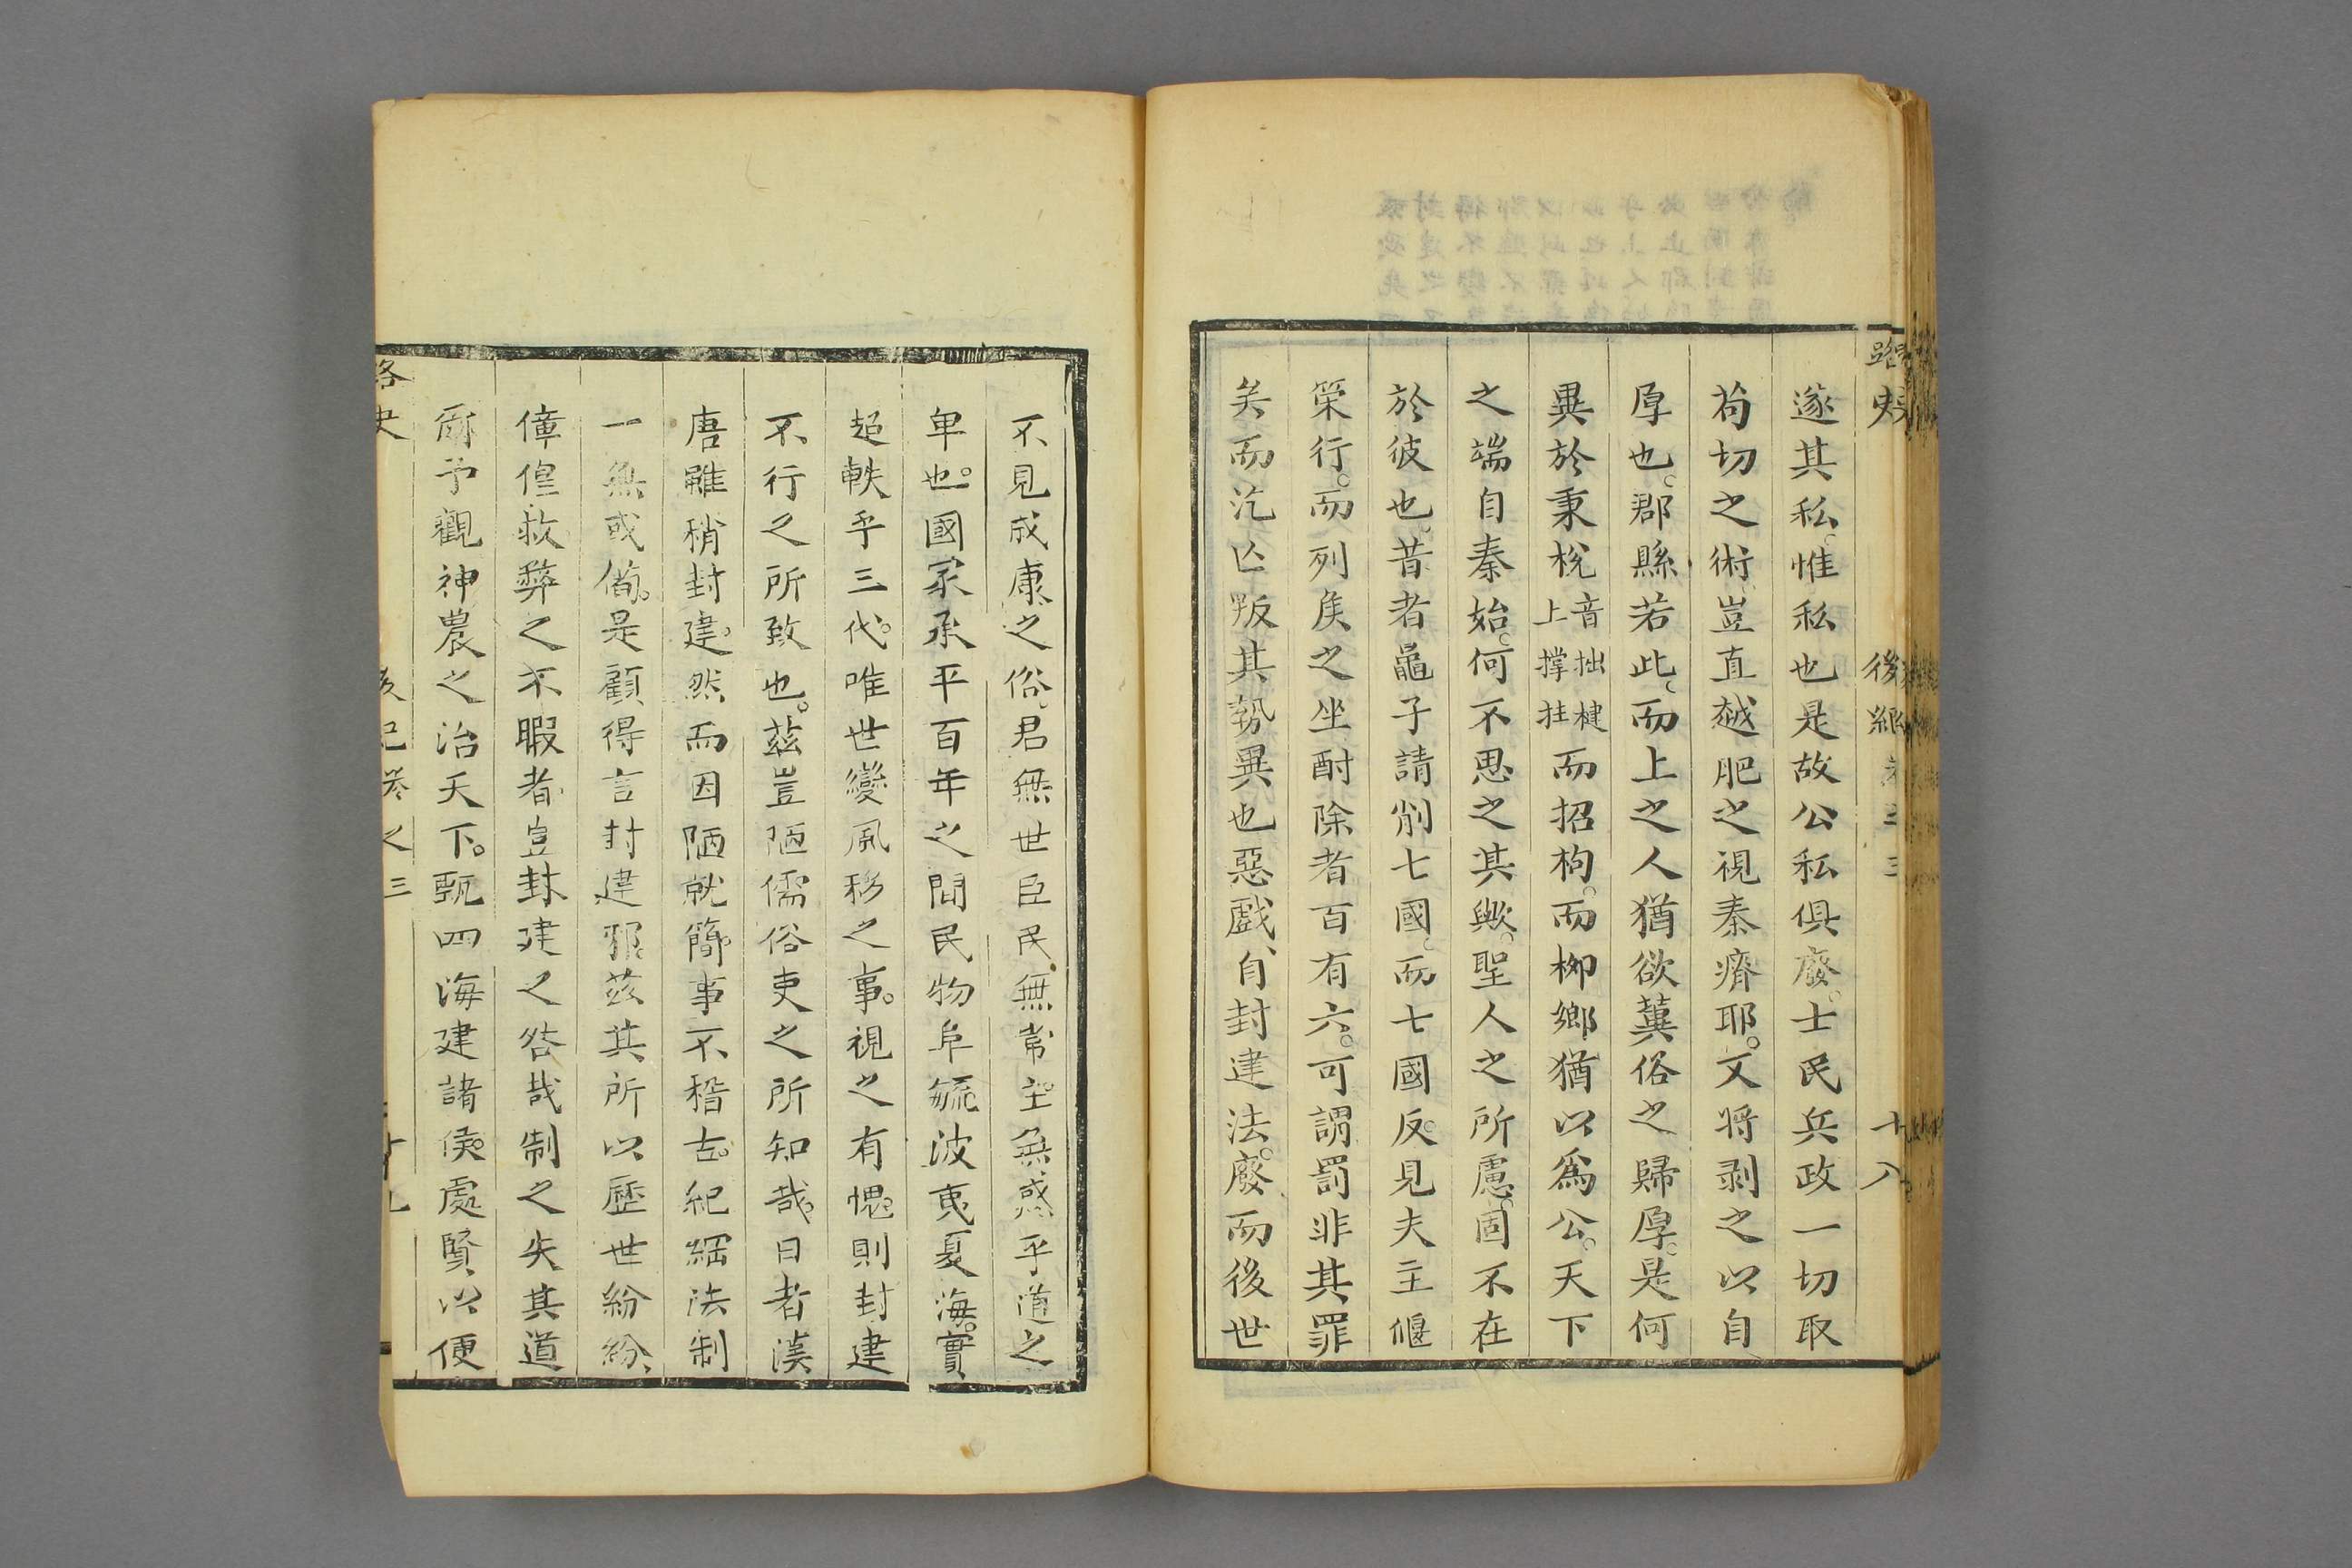 路史 後紀 卷之三 十八
遂其私惟私也是故公私俱廢士民兵政一切取
苟切之術豈直越肥之視秦瘠耶又將剥之以自
厚也郡縣若此而上之人猶欲冀俗之歸厚是何
異於秉梲音拙楗上撑拄而招枸而柳鄉猶以爲公天下
之端自秦始何不思之其歟聖人之所慮固不在
於彼也昔者鼂子請削七國而七國反見夫主偃
筞行而列矦之坐酎除者百有六可謂罰非其罪
矣而汔亾叛其勢異也惡戲自封建法廢而後世
不見成康之俗君無世臣民無常主無惑乎道之
卑也國家承平百年之間民物阜毓波夷夏海實
超軼乎三代唯世變風移之事視之有愧則封建
不行之所致也茲豈陋儒俗吏之所知哉日者漢
唐雖稍封建然而因陋就簡事不稽古紀綱法制
一無或備是顧得言封建邪茲其所以歷世紛紛
偉偟救弊之不暇者豈封建之咎哉制之失其道
爾予觀神農之治天下甄四海建諸侯處賢以便
路史 後紀卷之三 十九